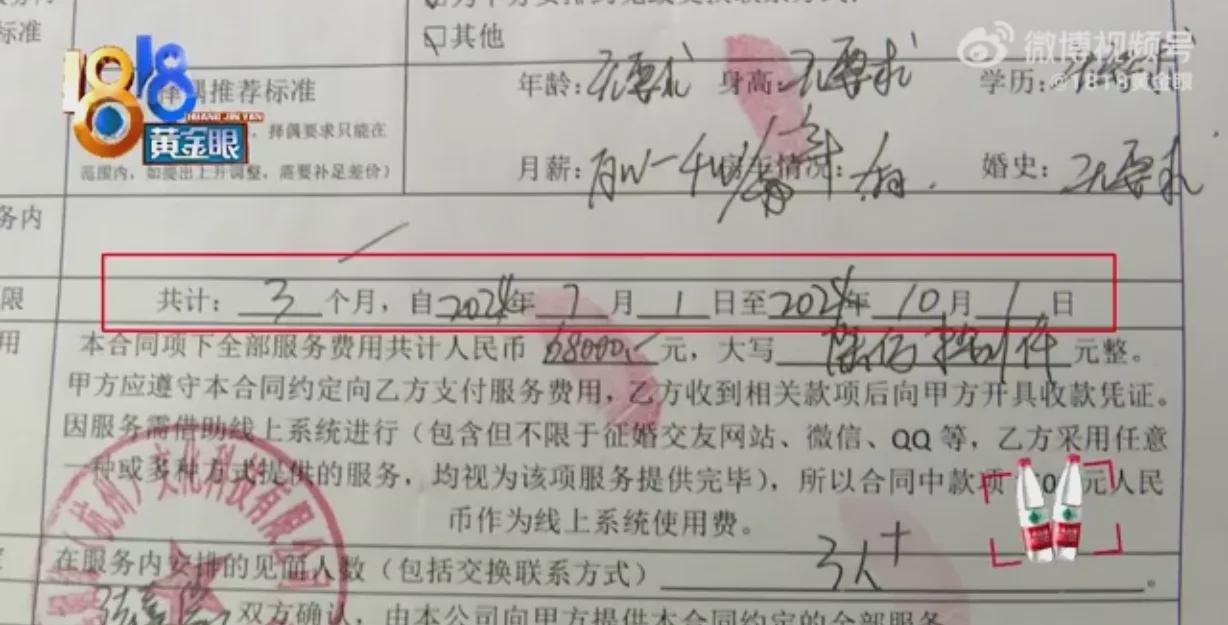 为甲方安排约见或交换联系方式.
务内
标准
其他
微博视频号
@1818黄金眼
1818
HUANG JIN YAN
黄金眼
择偶推荐标准
，择偶要求只能在
范围内，如提出上升调整，需要补足差价）
年龄：无要求 身高：无要求 学历：
月薪：月收一千以 房车情况： 有. 婚史：无要求
务内
限 共计：3个月，自2024年7月1日至2024年10月1日
用 本合同项下全部服务费用共计人民币68000.-元，大写 元整。
甲方应遵守本合同约定向乙方支付服务费用，乙方收到相关款项后向甲方开具收款凭证。
因服务需借助线上系统进行（包含但不限于征婚交友网站、微信、QQ等，乙方采用任意
一种或多种方式提供的服务，均视为该项服务提供完毕），所以合同中款项 元人民
币作为线上系统使用费。
在服务内安排的见面人数（包括交换联系方式） 3人+ 。
双方确认，由本公司向甲方提供本合同约定的全部服务
杭州 文化科技有限公